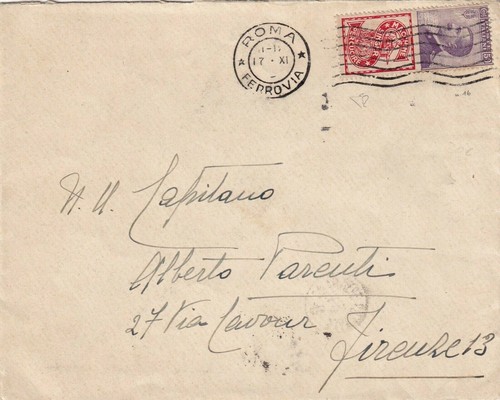 ROMA
17 · XI
FERROVIA
N. U. Capitano
Alberto Parenti
27 Via Cavour Firenze 13